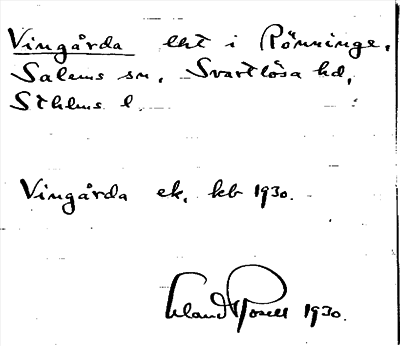 Vingårda lht i Rönninge,
Salems sn, Svartlösa hd,
Sthlms l.
Vingårda ek. kb 1930.
Erland Rosell 1930.